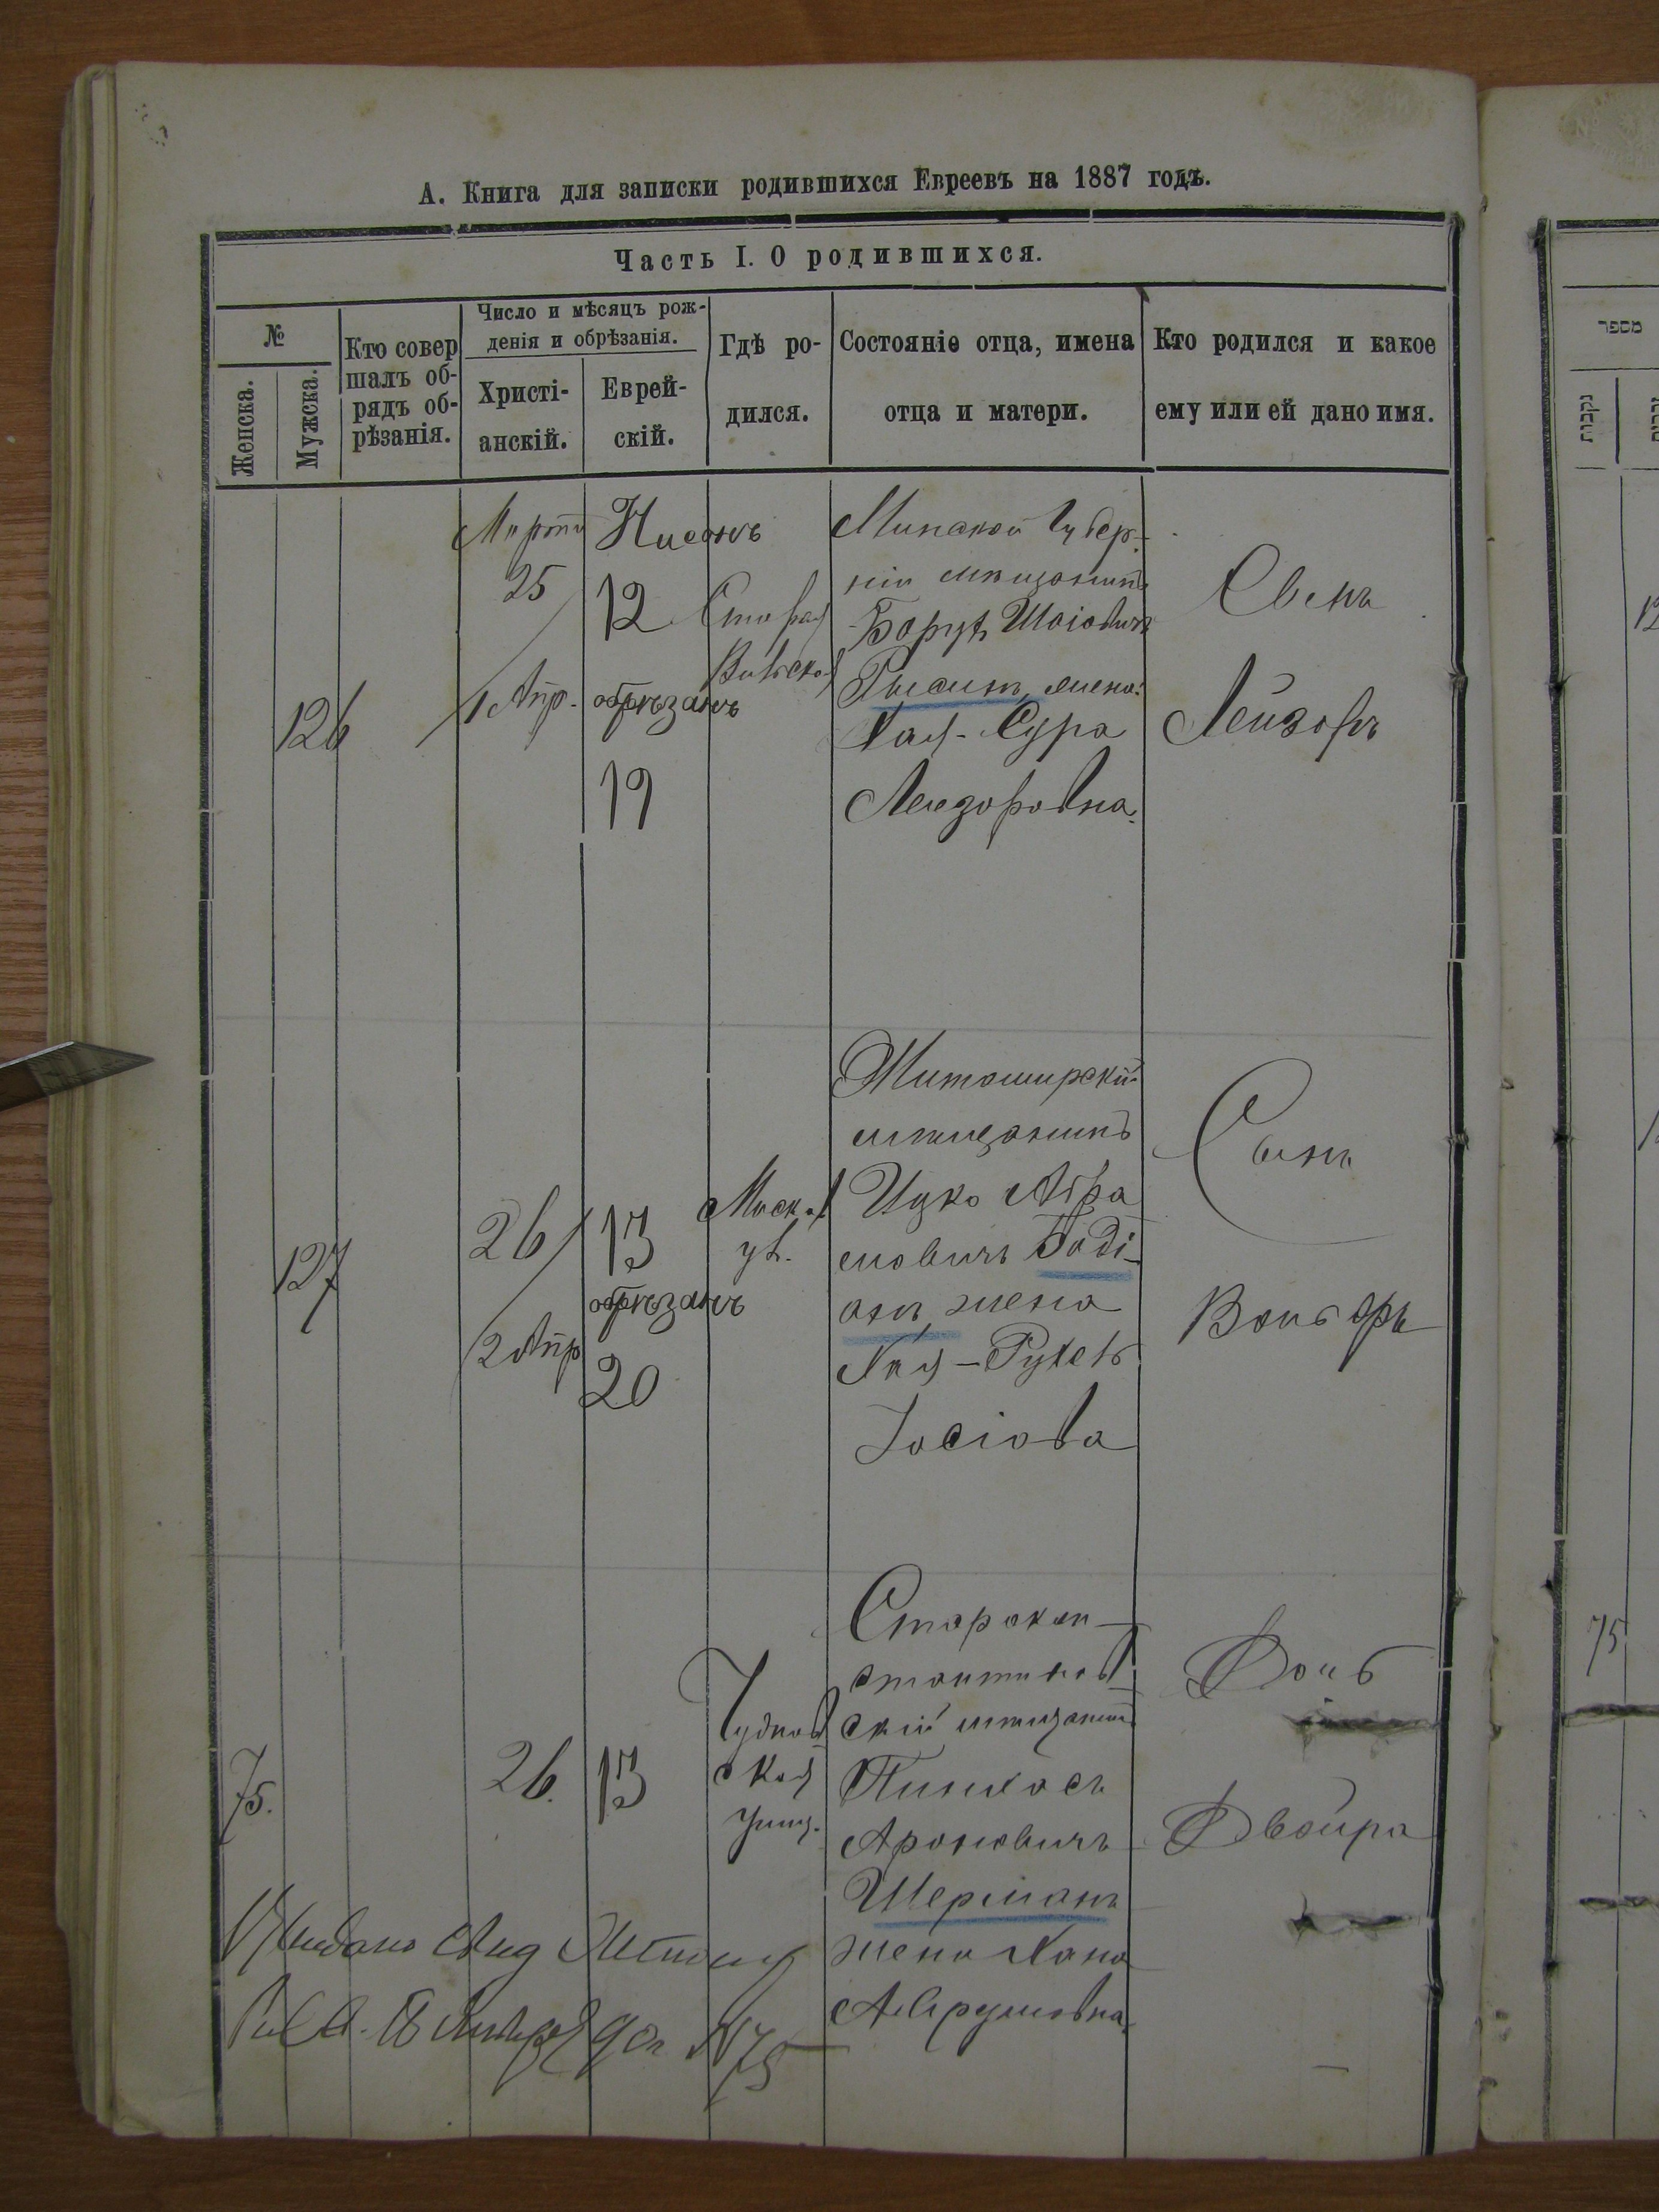 А. Книга для записки родившихся Евреевъ на 1887 годъ.
Часть I. О родившихся.
№
Женска.
Мужска.
Кто совер
шалъ об-
рядъ об-
рѣзанія.
Число и мѣсяцъ рож-
денія и обрѣзанія.
Христі-
анскій.
Еврей-
скій.
Гдѣ ро-
дился.
Состояніе отца, имена
отца и матери.
Кто родился и какое
ему или ей дано имя.
126
Марта
25
1 Апр.
Нисанъ
12
обрѣзанъ
19
Старая
Вильск.
Минской Губер-
ніи мѣщанинъ
Борухъ Шоіовичъ
жена:
Хая-Сура
Лейзоровна.
Сынъ
Лейзоръ
127
26
2 Апр
13
обрѣзанъ
20
Моск.
ул.
Житомирскій
мѣщанинъ
Ицко Абра
мовичъ Баді-
анъ, жена
Хая-Рухель
Іосіова
Сынъ
75.
26.
13
Чуднов
ская
улиц.
Староко
стантинов
скій мѣщанин
Пинхасъ
Ароновичъ
Шерманъ
жена Хана
Дочь
Двойра
№ 75
מספר
נקבות
75